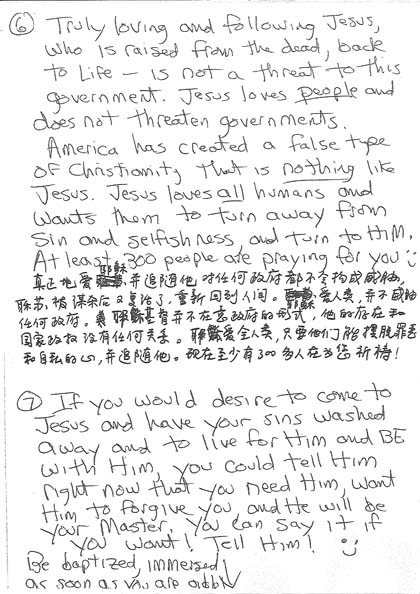 ⑥ Truly loving and following Jesus,
who is raised from the dead, back
to Life – is not a threat to this
government. Jesus loves people and
does not threaten governments.
America has created a false type
of Christianity that is nothing like
Jesus. Jesus loves all humans and
wants them to turn away from
Sin and selfishness, and turn to HIM.
At least 300 people are praying for you
耶稣
真正地爱 并追随他,对任何政府都不会构成威胁,
耶苏被谋杀后又复活了,重新回到人间。 爱人类,并不威胁
耶稣
任何政府。 耶稣基督并不在意政府的形式,他的存在和
国家政权没有任何关系。耶稣爱全人类,只要他们能摆脱罪恶
和自私的心,并追随他。现在至少有300多人在为您祈祷!
⑦ If you would desire to come to
Jesus and have your sins washed
away and to live for Him and BE
with Him, you could tell Him
right now that you need Him, want
Him to forgive you, and He will be
your Master. You can say it if
you want! Tell Him!
Be baptized, immersed
as soon as you are able